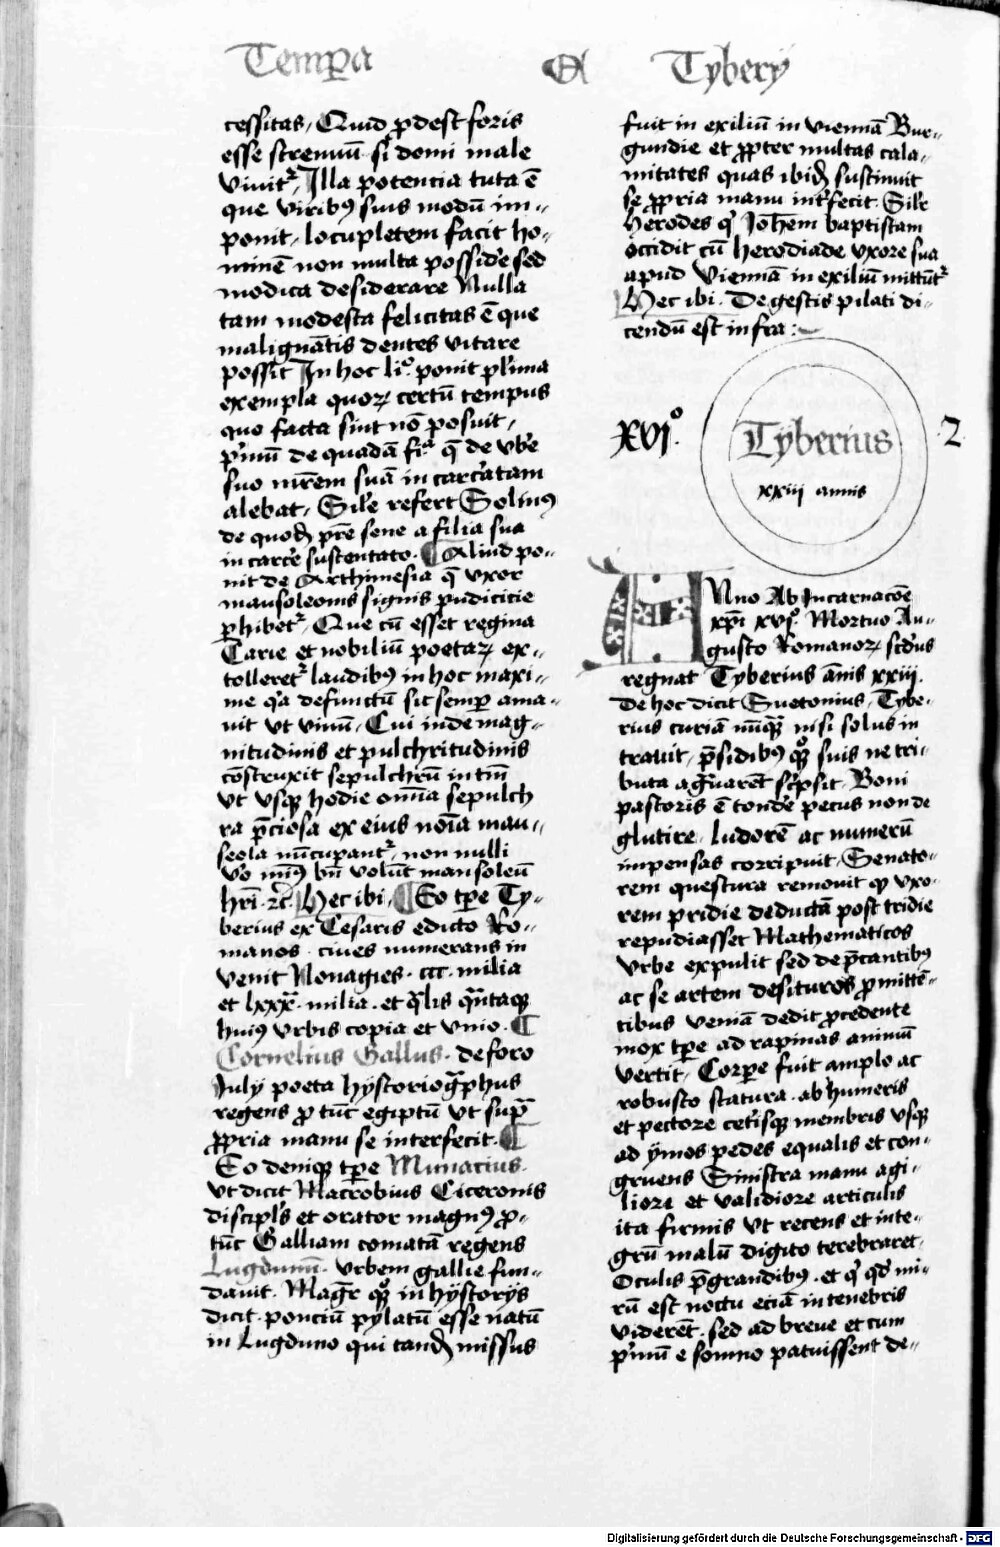 Temp̱a A Tyberÿ
cessitas, Quid ꝓdest foris
esse strenuū si domi male
viuitᷣ, Illa potencia tuta ē
que viribꝰ suis modū im-
ponit, locupletem facit ho-
minē non multa possideᷣ sed
modica desiderare Nulla
tam modesta felicitas ē que
malignātis dentes vitare
possit In hoc liᵒ. ponit pl'ima
exempla quoꝝ certū tempus
quo facta sint nō posuit,
pᷣmū de quadā fiᵃ q̄ de vb'e
suo mr̄em suā in carc'atam
alebat, Sil'r refert Solinꝰ
de quodꝫ pr̄e sene a filia sua
in carc'e sustentato. ¶ Aliud po-
nit de Arthimesia q̄ vxor
mausoleonis signis pudicicie
ꝑhibetᷣ, Que cū esset regina
Carie et nobiliū poetaꝝ ex-
tolleretᷣ laudibꝰ in hoc maxi-
me qᷓa defunctū sic semꝑ ama-
uit vt viuū, Cui inde mag-
nitudinis et pulchritudinis
cōstruxit sepulchrū in tm̄
vt vsqꝫ hodie om̄ia sepulch
ra p̄ciosa ex eius noīa mau-
seola nūcupantᷣ, non nulli
v'o mīꝰ bn̄ volūt mansoleū
hr̄i ⁊c̄. Hec ibi, ¶ Eo tꝑe Ty-
berius ex Cesaris edicto Ro-
manos ciues numerans in
venit Nonagies. ccc. milia
et lxxx. milia. et q̄lis q̄ntaqꝫ
huiꝰ vrbis copia et vnio. ¶
Cornelius Gallus. de foro
July poeta hystoriogᷓphus
regens ꝓ tūc egiptū vt supᷓ
ꝓpria manu se interfecit. ¶
Eo deniqꝫ tꝑe Munacius.
vt dicit Macrobius Ciceronis
discipl's et orator magnꝰ ꝓ-
tūc Galliam comatā regens
Lugdunū. vrbem gallie fun-
dauit. Magr̄ qꝫᵒ in hystorÿs
dicit ponciū pylatū esse natū
in Lugduno qui tandꝫ missus
fuit in exiliū in viennā Bur-
gundie et ꝓpter multas cala-
mitates quas ibidꝫ sustinuit
se ꝓpria manu int'fecit. Sil'r
Herodes qⁱ Joh̄em baptistam
occidit cū herodiade vxore sua
apud viennā in exiliū mittūtᷣ
Hec ibi. De gestis pilati di-
cendū est infra:
xvjᵒ. Tÿberius 2
xxiij annis
Anno Ab Incarnacōe
xp̄i xvjᵒ. Mortuo Au-
gusto Romanoꝝ sc'dus
regnat Tyberius ānis xxiij.
De hoc dicit Suetonius, Tybe-
rius curiā nūqᷓ nisi solus in
trauit, p̄sidibꝰ qꝫᵒ suis ne tri-
buta agᷓuarēt sc'psit. Boni
pastoris ē tond'e pecus non de
glutire. ludorē ac numerū
impensas corripuit, Senato-
rem questura remouit qꝫ vxo-
rem pridie deductā post tridie
repudiasset Mathematicos
vrbe expulit sed dep̄cantibꝰ
ac se artem desituros ꝓmittē-
tibus veniā dedit ꝓcedente
mox tꝑe ad rapinas animū
vertit, Corꝑe fuit amplo ac
robusto statura. ab humeris
et pectore cet'isqꝫ membris vsqꝫ
ad ÿmos pedes equalis et con-
gruens Sinistra manu agi-
liori et validiore articulis
ita firmis vt recens et inte-
grū malū digito terebraret.
Oculis p̄grandibꝰ. et qⁱ qd' mi-
rū est noctu eciā in tenebris
viderēt. sed ad breue et cum
pᷣmū e somno patuissent de-
Digitalisierung gefördert durch die Deutsche Forschungsgemeinschaft - DFG